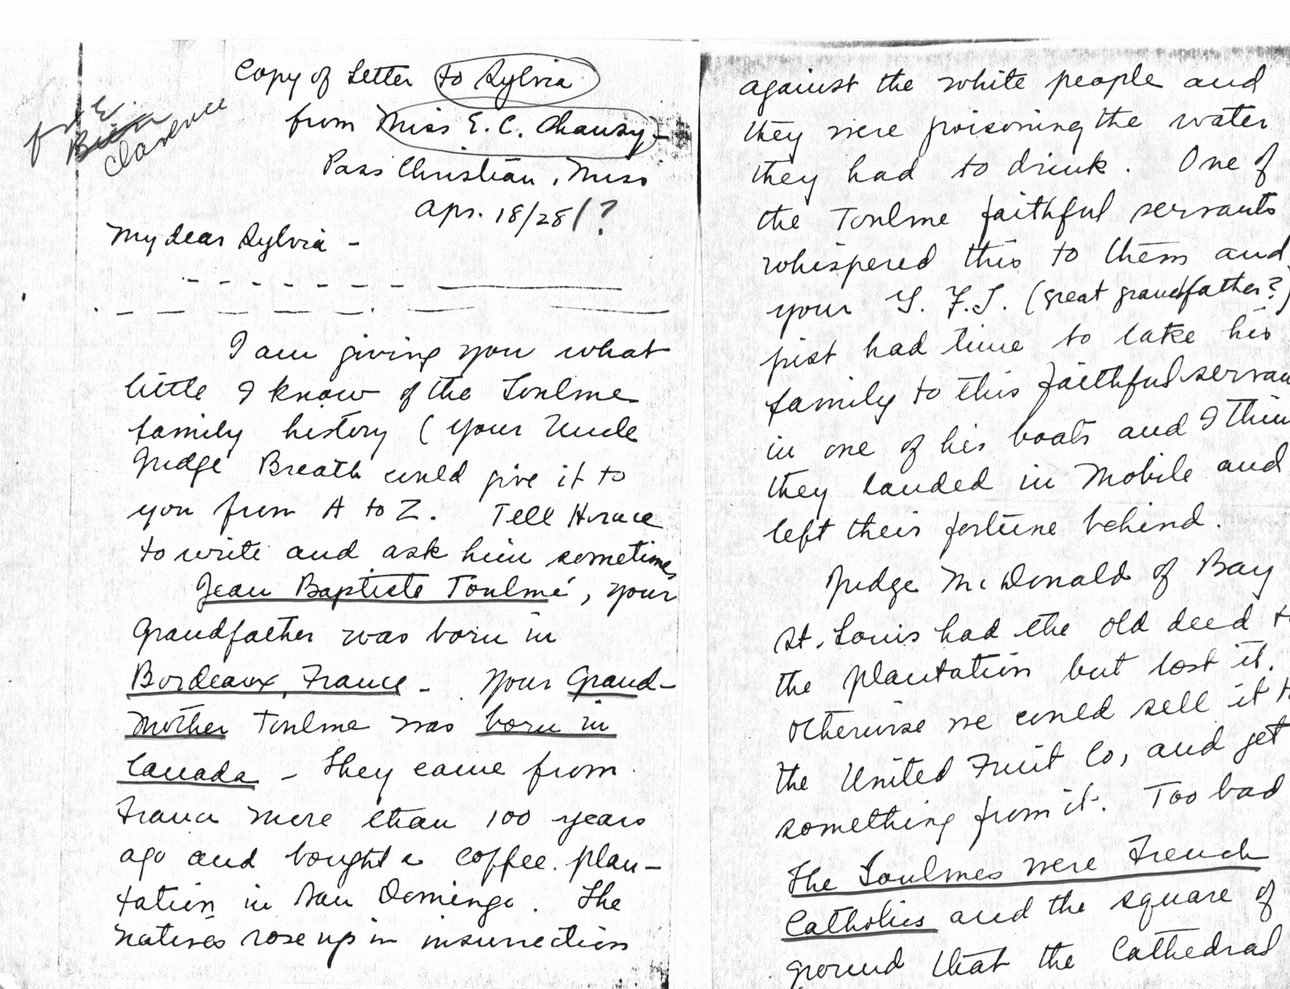 Copy of Letter to Sylvia
from Miss E. C. Chausy -
Pass Christian, Miss
Apr. 18/28/?
for E.
Clarence
My dear Sylvia -
I am giving you what
little I know of the Toulme
family history ( your Uncle
Judge Breath could give it to
you from A to Z. Tell Horace
to write and ask him sometimes
Jean Baptiste Toulmé, your
Grandfather was born in
Bordeaux, France - your Grand-
Mother Toulme was born in
Canada - They came from
France more than 100 years
ago and bought a coffee plan-
tation in San Domingo. The
natives rose up in insurrection
against the white people and
they were poisoning the water
they had to drink. One of
the Toulme faithful servants
whispered this to them and
your G. F. T. (great grandfather?)
just had time to take his
family to this faithful servan
in one of his boats and I thin
they landed in Mobile and
left their fortune behind.
Judge McDonald of Bay
St. Louis had the old deed to
the plantation but lost it.
Otherwise we could sell it to
the United Fruit Co, and get
something from it. Too bad
The Toulmes were French
Catholics and the square of
ground that the Cathedral